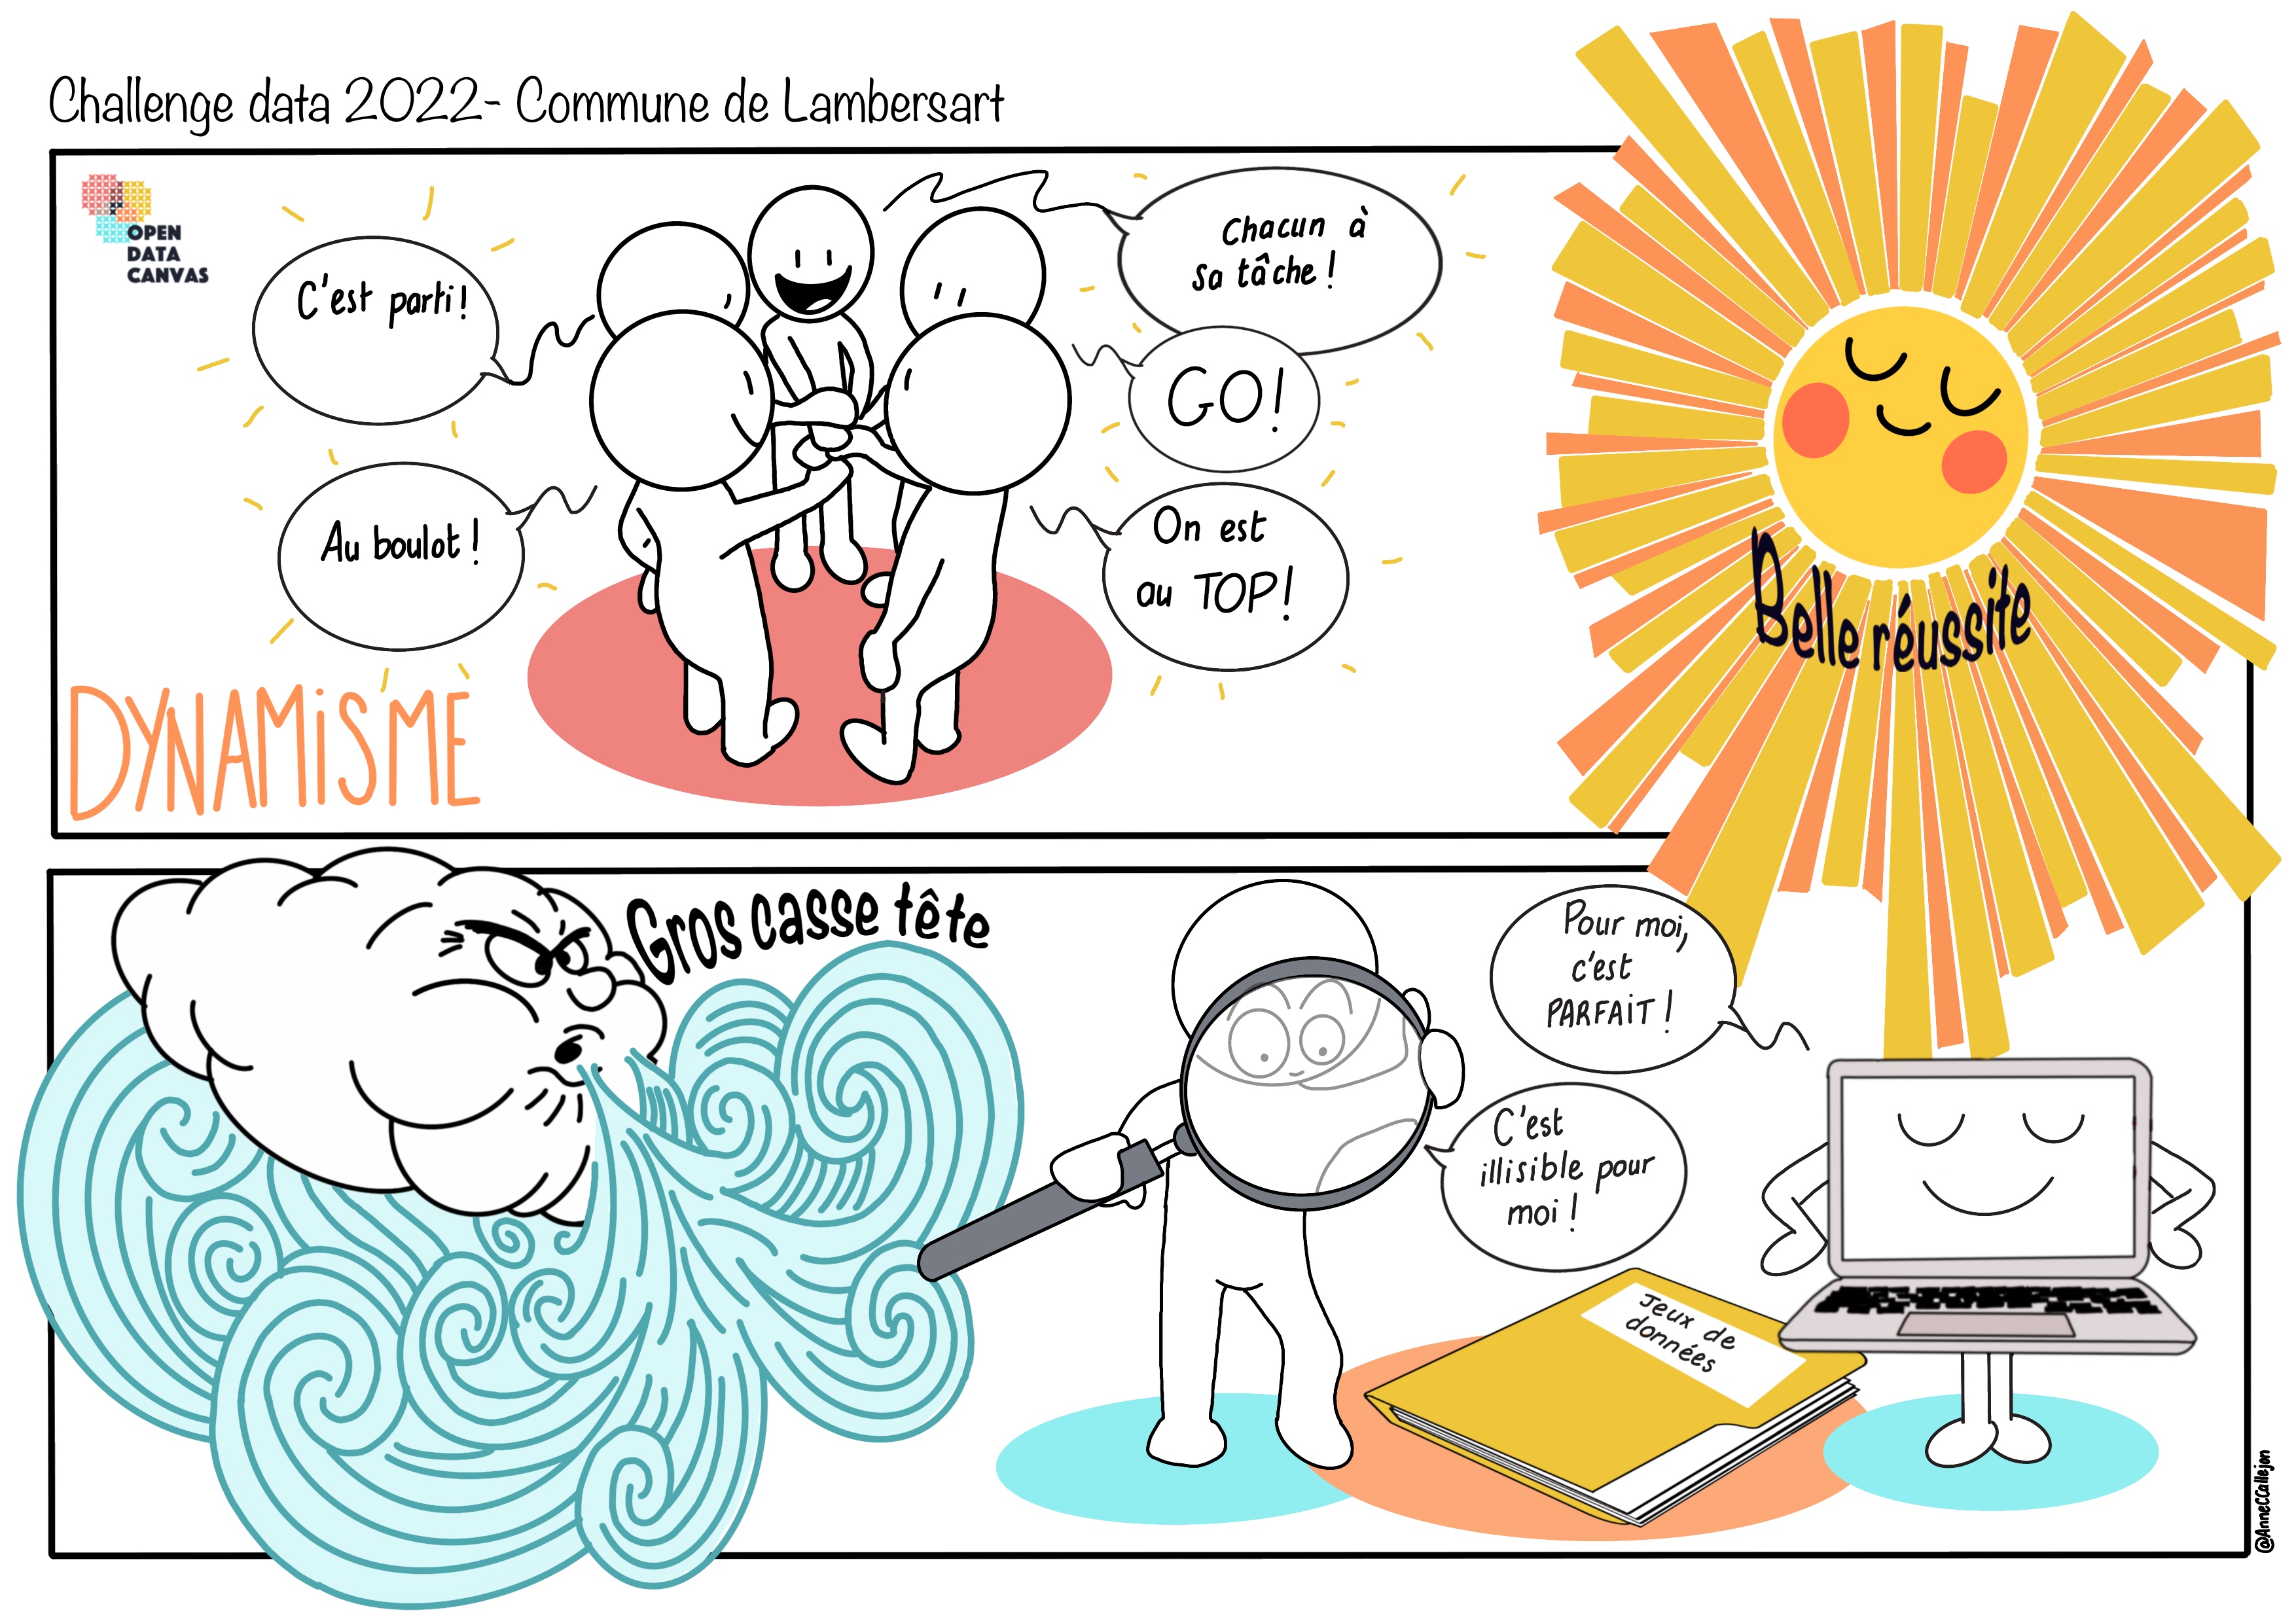 Challenge data 2022- Commune de Lambersart
OPEN
DATA
CANVAS
C'est parti!
Chacun à
sa tâche!
GO!
Au boulot!
On est
au TOP!
DYNAMiSME
Belle réussite
Gros casse tête
Pour moi,
c'est
PARFAiT!
C'est
illisible pour
moi!
Jeux de
données
@AnneCCallejon